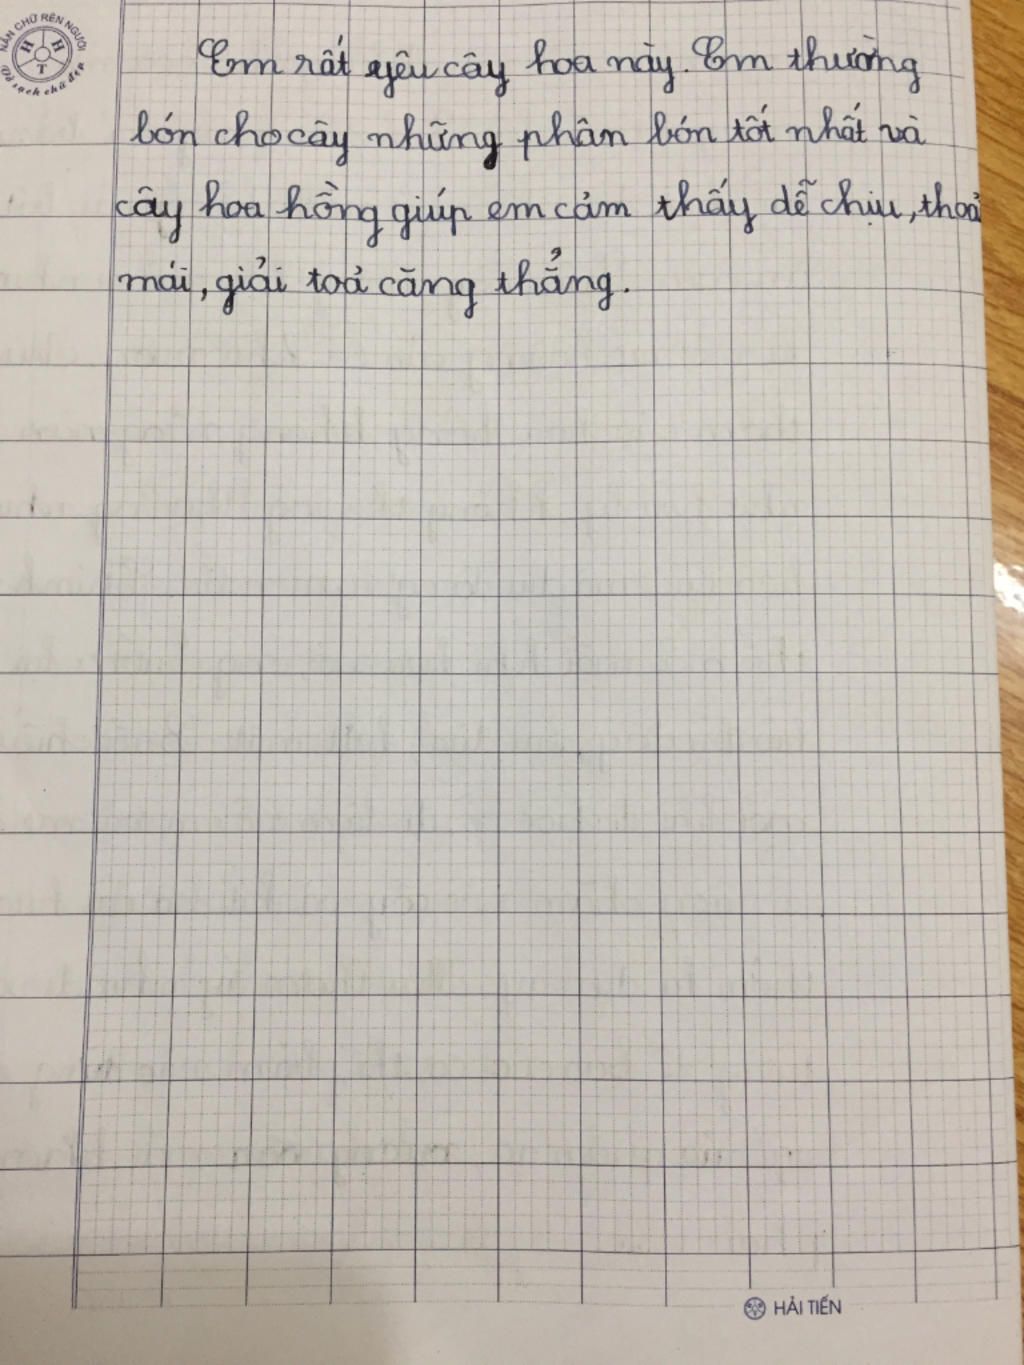 NẮN CHỮ RÈN NGƯỜI
H H T
Vở sạch chữ đẹp
Em rất yêu cây hoa này. Em thường
bón cho cây những phân bón tốt nhất và
cây hoa hồng giúp em cảm thấy dễ chịu, thoả
mái, giải toả căng thẳng.
HẢI TIẾN